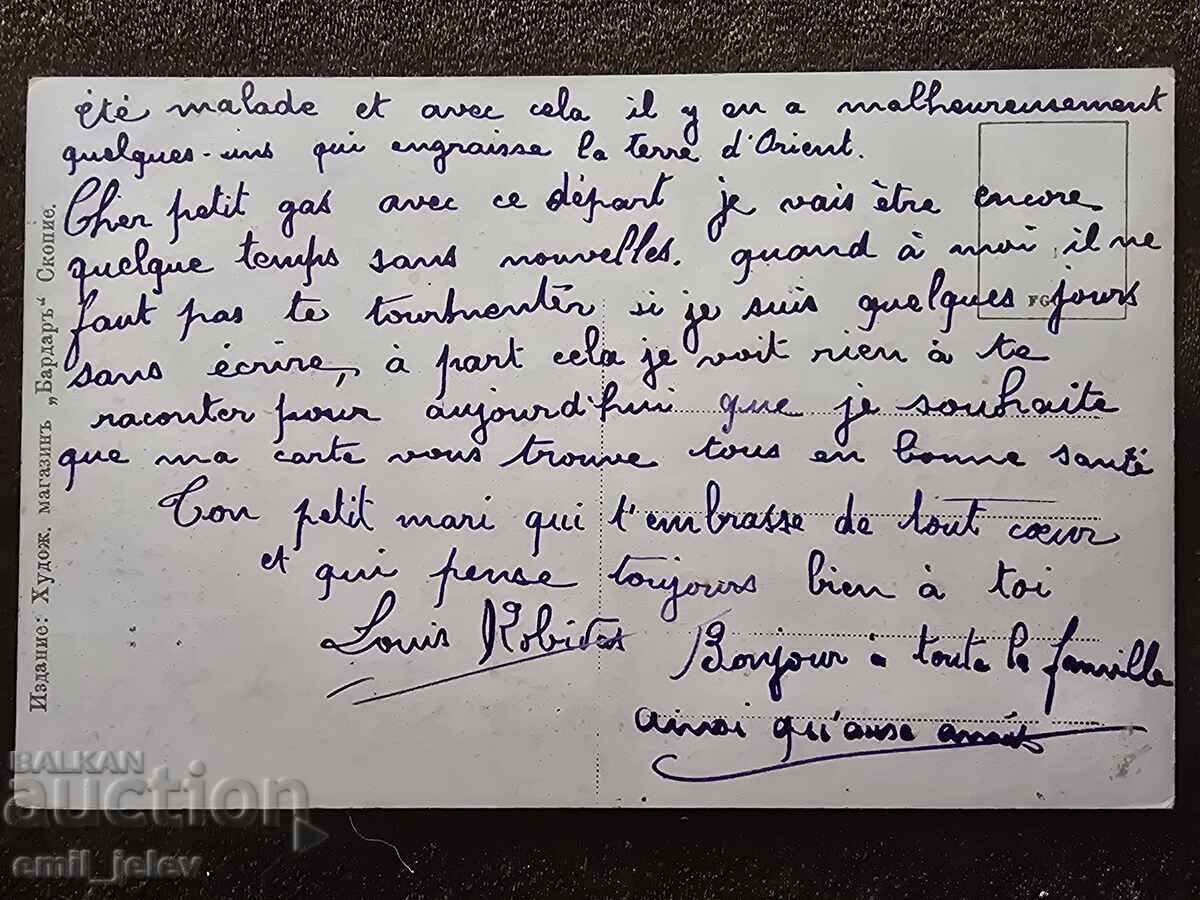 été malade et avec cela il y en a malheureusement
quelques-uns qui engraisse la terre d'Orient.
Cher petit gas avec ce départ je vais être encore
quelque temps sans nouvelles. quand à moi il ne
faut pas te tourmenter si je suis quelques jours
sans écrire, à part cela je voit rien à te
raconter pour aujourd'hui que je souhaite
que ma carte vous trouve tous en bonne santé
Ton petit mari qui t'embrasse de tout cœur
et qui pense toujours bien à toi
Louis
Bonjour à toute la famille
ainsi qu'ause
FG
Издание: Худож. магазинъ „Вардаръ“ Скопие.
BALKAN
auction
emil_jelev